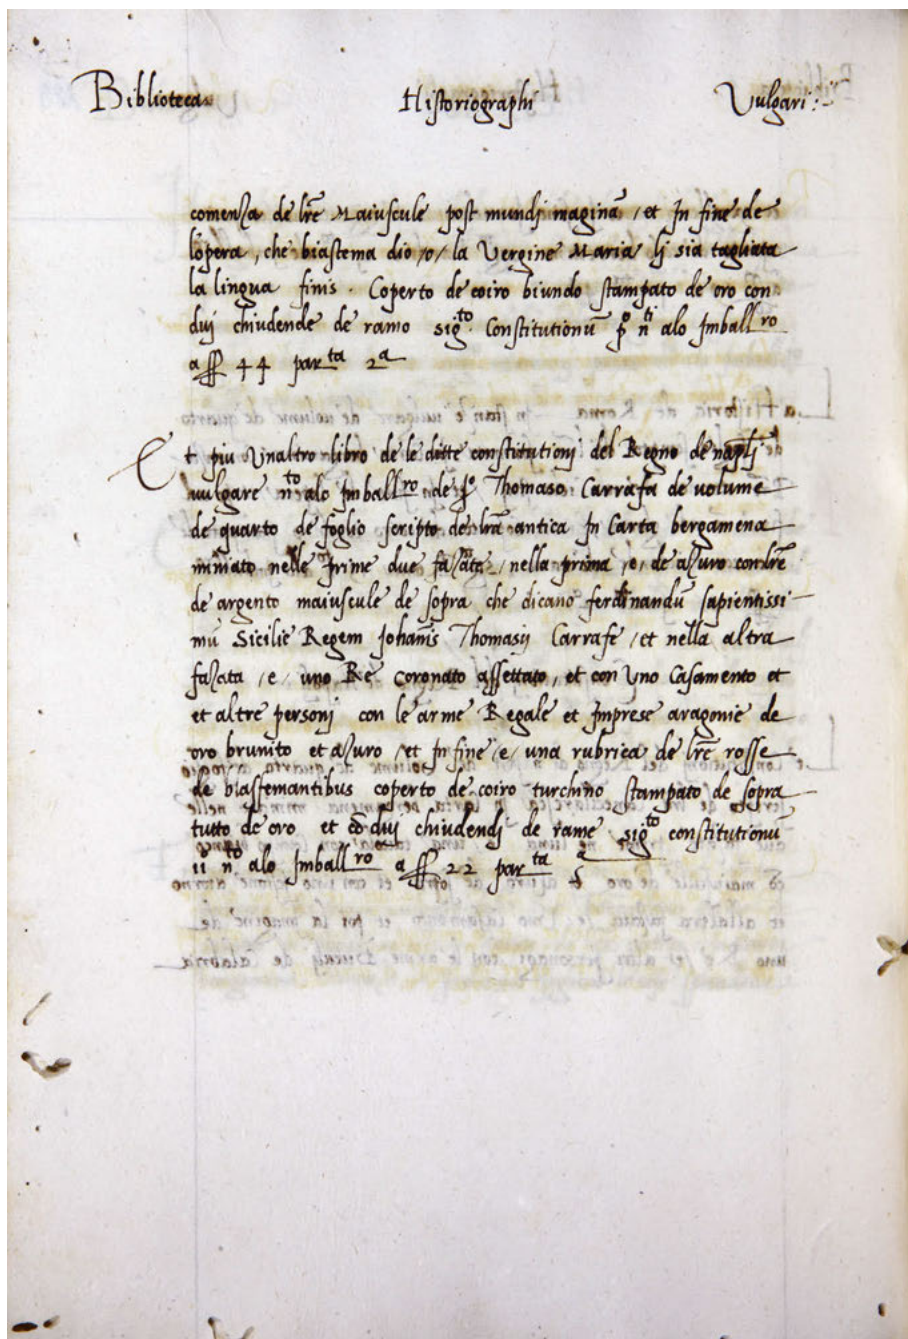 Biblioteca Historiographi Vulgari :~
comenza de lr̃e Maiuscule post mundj maginã /et In fine de
l'opera, che biastema dio /o/ la Vergine Maria lj sia tagliata
la lingua finis . Coperto de coiro biundo stampato de oro con
duj chiudende de ramo sig^to. Constitutionũ p^o n^ti alo Imball^ro
a ff 44 par^ta 2^a
Et piu Unaltro libro de le ditte constitutionj del Regno de naplj
vulgare n^to alo Imball^ro de p^o Thomaso Carrafa de volume
de quarto de foglio scripto de lr̃a antica In Carta bergamena
miniato nelle prime due fazate /nella prima /e/ de azuro con lr̃e
de argento maiuscule de sopra che dicano ferdinandũ sapientissi
mũ Sicilie Regem Johanis Thomasij Carrafe /et nella altra
fazata /e/ uno Re coronato assettato, et con Uno Casamento et
et altre personj con le arme Regale et Imprese aragonie de
oro brunito et azuro /et In fine /e/ una rubrica de lr̃e rosse
de blasfemantibus coperto de coiro turchino stampato de sopra
tutto de oro et cõ duj chiudendj de rame sig^to constitutionũ
ii^o n^to alo Imball^ro a ff 22 par^ta